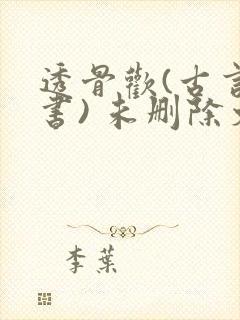 透骨歡(古言
書)未删除文
李葉